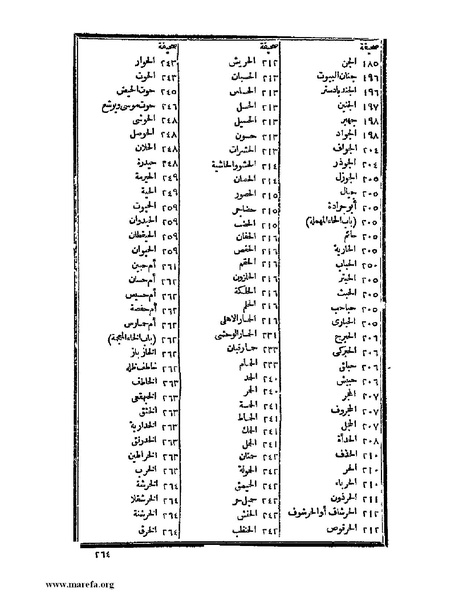 صحيفة
١٨٥ الجن
١٩٦ جنان البيوت
١٩٦ الجندبادستر
١٩٧ الجنين
١٩٨ جهبر
١٩٨ الجواد
٢٠٤ الجواف
٢٠٤ الجوذر
٢٠٥ الجوزل
٢٠٥ جيأل
٢٠٥ أبو جرادة
٢٠٥ (باب الحاء المهملة)
٢٠٥ حائم
٢٠٥ الحارية
الحباب
٢٠٥ الحبتر
٢٠٥ الحبث
٢٠٥ حباحب
٢٠٥ الحبارى
٢٠٦ الحبرج
٢٠٦ الحبركى
٢٠٦ حبلق
٢٠٦ حبيش
٢٠٧ الحجر
٢٠٧ الحجروف
٢٠٧ الحجل
٢٠٨ الحدأة
٢١٠ الحذف
٢١٠ الحر
٢١٠ الحرباء
٢١١ الحرذون
٢١٢ الحرشاف أو الحرشوف
٢١٢ الحرقوص
صحيفة
٢١٢ الحريش
٢١٢ الحسبان
٢١٣ الحساس
٢١٣ الحسل
٢١٣ الحسيل
٢١٣ حسون
٢١٣ الحشرات
٢١٤ الحشو والحاشية
٢١٤ الحصان
٢١٥ الحصور
٢١٥ حضاجر
٢١٥ الحضب
٢١٦ الحفان
٢١٦ الحفص
٢١٦ الحقم
٢١٦ الحلزون
٢١٦ الحلكة
٢١٦ الحلم
٢١٦ الحمار الاهلى
٢٣١ الحمار الوحشى
٢٣٣ حمار قبان
٢٣٣ الحمام
٢٤٠ الحمد
٢٤٠ الحمر
٢٤١ الحمسة
٢٤١ الحماط
٢٤١ الحمك
٢٤١ الحمل
٢٤٢ حمنان
٢٤٢ الحمولة
٢٤٢ الحميمق
٢٤٢ حميل حر
٢٤٢ الحنش
٢٤٢ الحنظب
صحيفة
٢٤٣ الحوار
٢٤٣ الحوت
٢٤٥ حوت الحيض
٢٤٦ حوت موسى ويوشع
٢٤٨ الحوشى
٢٤٨ الحوصل
٢٤٨ الحلان
٢٤٨ حيدرة
٢٤٩ الحيرمة
٢٤٩ الحية
٢٥٩ الحيوت
٢٥٩ الحيدوان
٢٥٩ الحيقطان
٢٥٩ الحيوان
٢٦١ أم حبين
٢٦٢ أم حسان
٢٦٢ أم حسيس
٢٦٢ أم حفصة
٢٦٢ أم حمارس
٢٦٢ (باب الخاء المعجمة)
٢٦٢ الخازباز
٢٦٢ خاطف ظله
٢٦٣ الخاطف
٢٦٣ الخبهقعى
٢٦٣ الخثق
٢٦٣ الخدارية
٢٦٣ الخدرنق
٢٦٣ الخراطين
٢٦٣ الخرب
٢٦٤ الخرشة
٢٦٤ الخرشقلا
٢٦٤ الخرشنة
٢٦٤ الخرق
٢٦٤
www.marefa.org